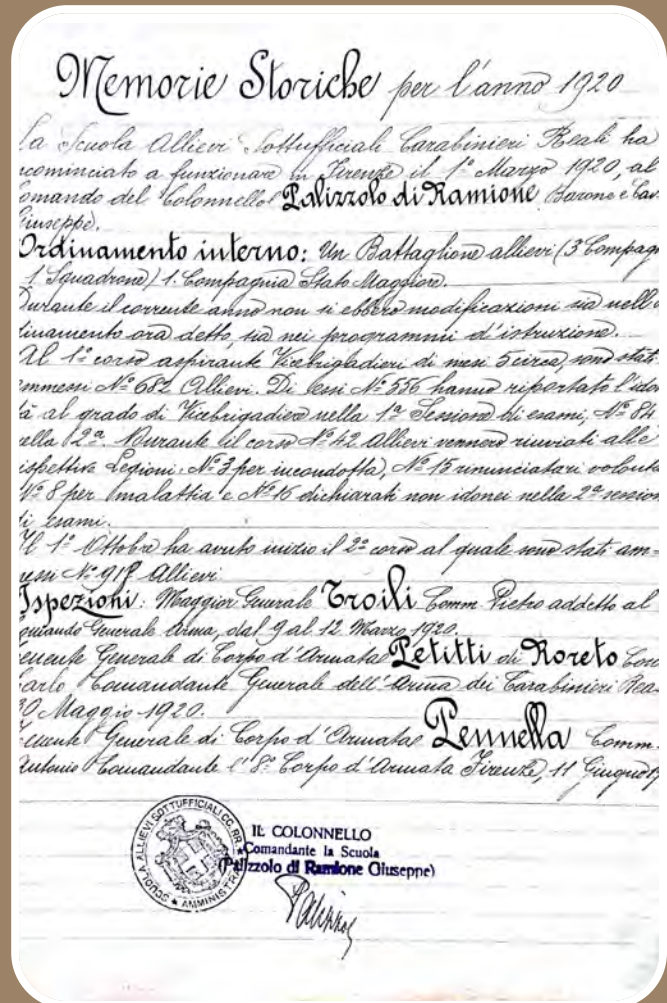 Memorie Storiche per l'anno 1920
La Scuola Allievi Sottufficiali Carabinieri Reali ha
cominciato a funzionare in Firenze il 1° Marzo 1920, al
omando del Colonnello Palizzolo di Ramione Barone e Cav.
Giuseppe.
Ordinamento interno: Un Battaglione allievi (3 Compagn
1 Squadrone) 1. Compagnia Stato Maggiore.
Durante il corrente anno non si ebbero modificazioni sia nell'o
dinamento ora detto, sia nei programmi d'istruzione.
Al 1° corso aspirante Vicebrigadieri di mesi 5 circa, sono stati
ammessi N° 682 Allievi. Di essi N° 556 hanno riportato l'idon
tà al grado di Vicebrigadiere nella 1ª Sessione di esami, N° 84
nella 2ª. Durante il corso N° 42 Allievi vennero rinviati alle
rispettive Legioni: N° 3 per incondotta, N° 15 rinunciatari volonta
N° 8 per malattia e N° 16 dichiarati non idonei nella 2ª session
di esami.
Il 1° Ottobre ha avuto inizio il 2° corso al quale sono stati am=
messi N° Allievi
Ispezioni: Maggior Generale Troili Comm. Pietro addetto al
omando Generale Arma, dal 9 al 12 Marzo 1920.
Tenente Generale di Corpo d'Armata Petitti di Roreto
Carlo Comandante Generale dell'Arma dei Carabinieri Rea
30 Maggio 1920.
Tenente Generale di Corpo d'Armata Pennella Comm.
Antonio Comandante l'8° Corpo d'Armata Firenze, 11 Giugno 19
SCUOLA ALLIEVI SOTTUFFICIALI CC. RR. ★ AMMINISTRA
IL COLONNELLO
Comandante la Scuola
(Palizzolo di Ramione Giuseppe)